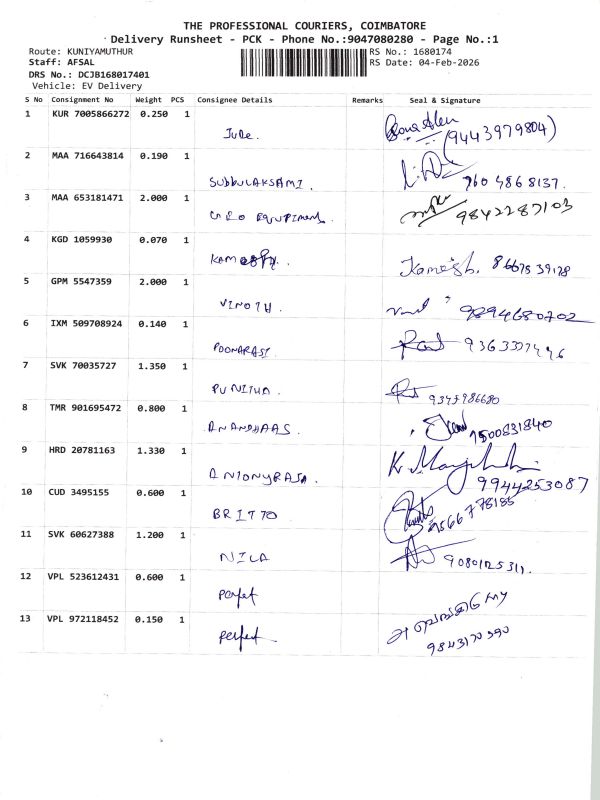 THE PROFESSIONAL COURIERS, COIMBATORE
Delivery Runsheet - PCK - Phone No.:9047080280 - Page No.:1
Route: KUNIYAMUTHUR RS No.: 1680174
Staff: AFSAL RS Date: 04-Feb-2026
DRS No.: DCJB168017401
Vehicle: EV Delivery
S No Consignment No Weight PCS Consignee Details Remarks Seal & Signature
1 KUR 7005866272 0.250 1 Jude. (9443979804)
2 MAA 716643814 0.190 1 SUBBULAKSAMI. 760 486 8137.
3 MAA 653181471 2.000 1 EQUIPMENT. 9842287103
4 KGD 1059930 0.070 1 Kamesh. 8667539178
5 GPM 5547359 2.000 1 VINOTH. 9894680702
6 IXM 509708924 0.140 1 POONARASI
7 SVK 70035727 1.350 1 PUNITHA.
8 TMR 901695472 0.800 1 ANANDHAAS. 7500831840
9 HRD 20781163 1.330 1 ANTONYRAJA. 9944253087
10 CUD 3495155 0.600 1 BRITTO 9566778185
11 SVK 60627388 1.200 1 NILA 9080125311.
12 VPL 523612431 0.600 1 perfet
13 VPL 972118452 0.150 1 perfect 9843170390